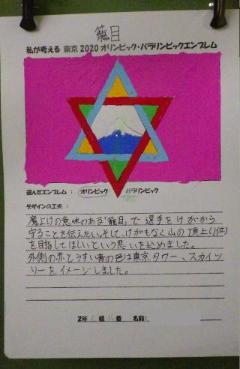 籠目
私が考える 東京2020オリンピック・パラリンピックエンブレム
選んだエンブレム：オリンピック パラリンピック
デザインの工夫：
魔よけの意味のある「籠目」で選手をけがから
守ることを伝えたい。そして、けがもなく山の頂上(1位)
を目指してほしいという思いを込めました。
外側の赤とうすい青の色は東京タワー、スカイツ
リーをイメージしました。
2年 組 番 名前